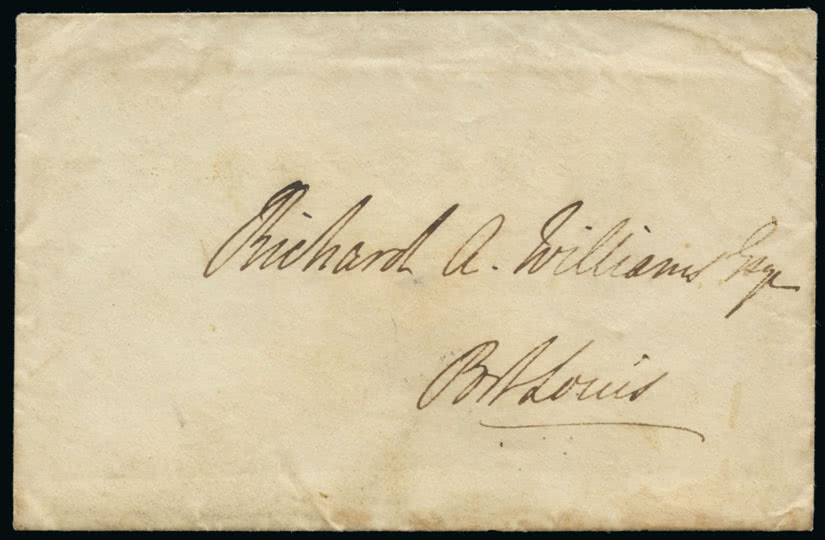 Richard A. Williams Esqr
Port Louis